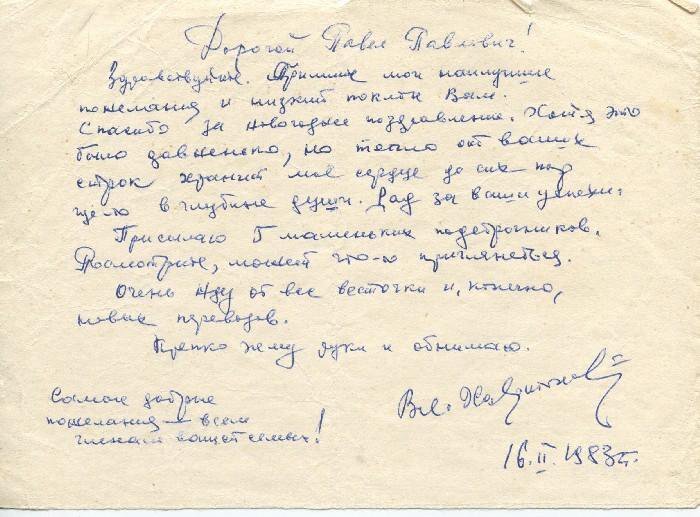 Дорогой Павел Павлович!
Здравствуйте. Примите мои наилучшие
пожелания и низкий поклон Вам.
Спасибо за новогоднее поздравление. Хотя это
было давненько, но тепло от ваших
строк хранит моё сердце до сих пор
где-то в глубине души. Рад за ваши успехи.
Присылаю 5 маленьких подстрочников.
Посмотрите, может что-то приглянеться.
Очень жду от вас весточки и, конечно,
новых переводов.
Крепко жму руки и обнимаю.
Вл.
Самые добрые
пожелания – всем
членам вашей семьи!
16.II.1983г.